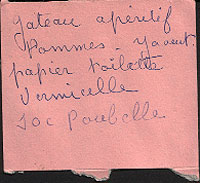 gateau apéritif
Pommes - yaourt.
papier toilette
Vermicelle
sac Poubelle